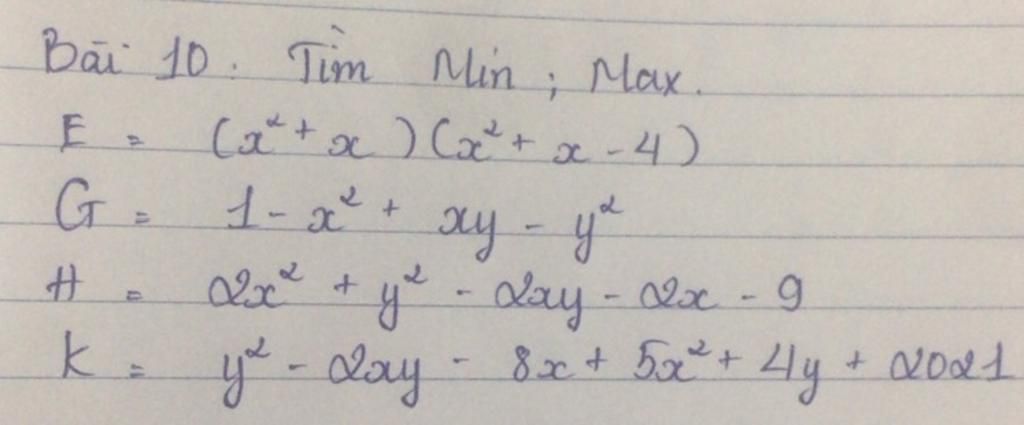 Bài 10. Tìm Min; Max.
E = (x² + x)(x² + x - 4)
G = 1 - x² + xy - y²
H = 2x² + y² - 2xy - 2x - 9
K = y² - 2xy - 8x + 5x² + 4y + 2021